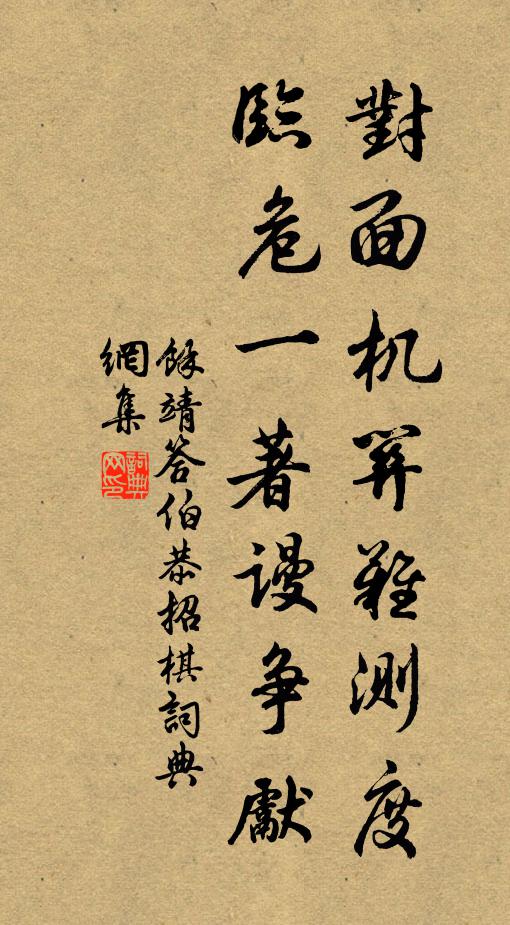 對面机關難測度
臨危一著謾争獻
餘靖答伯恭招棋詞典
網集
詞典
网印